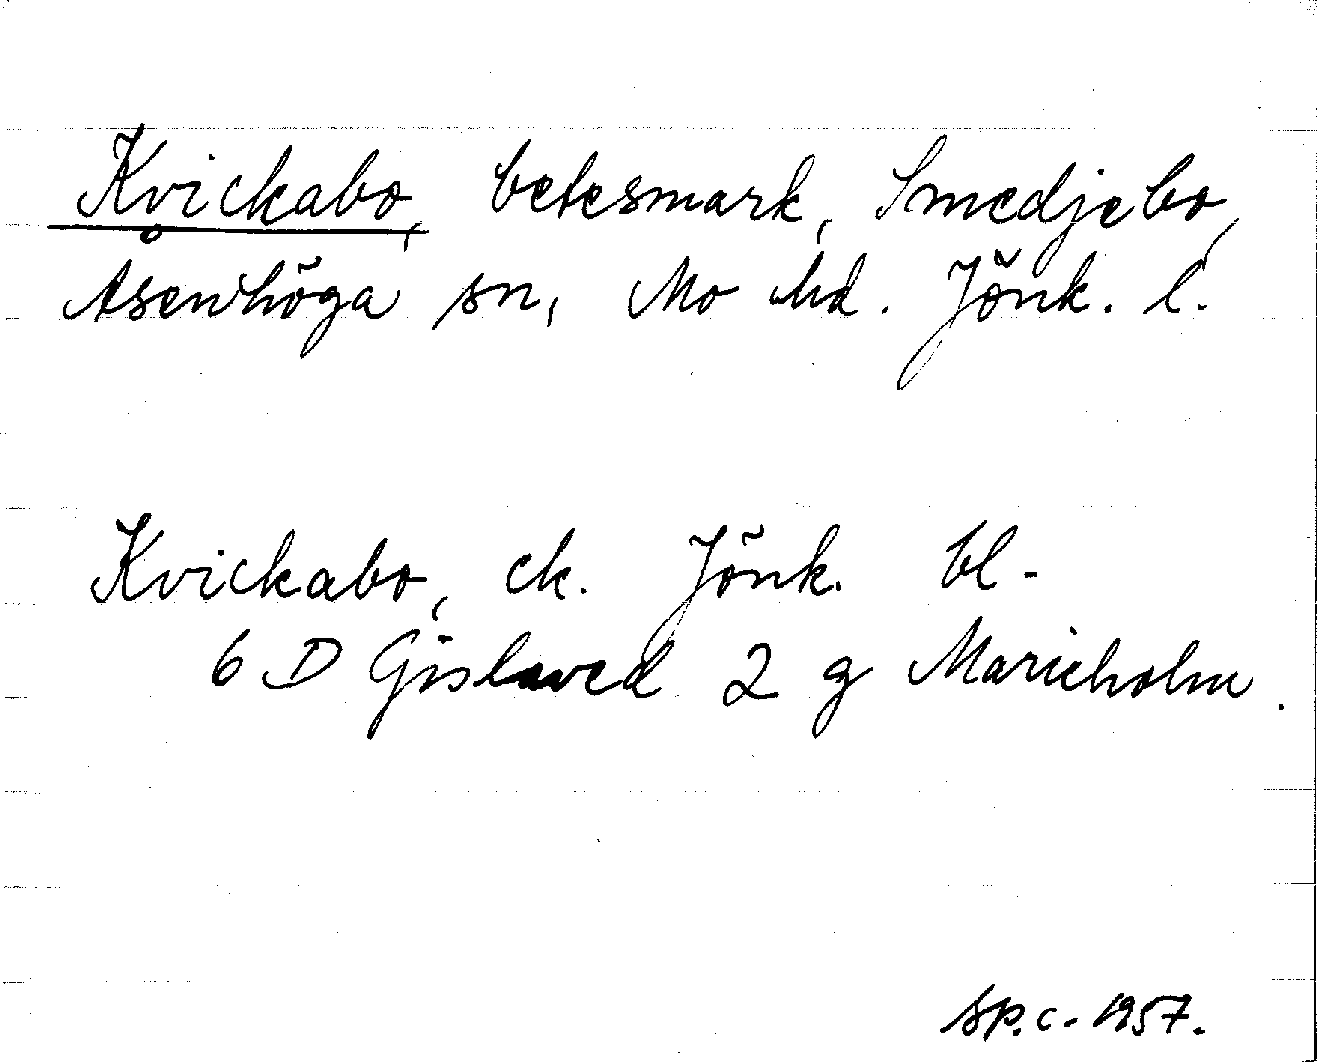 Kvickabo, betesmark, Smedjebo,
Åsenhöga sn, Mo hd. Jönk. l.
Kvickabo, ek. Jönk. bl.
6 D Gislaved 2 g Marieholm.
Sp.c. 1957.